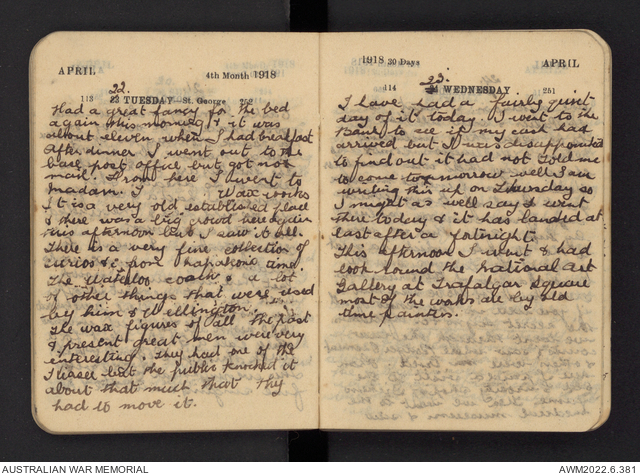 APRIL
4th Month 1918
22.
113 23 TUESDAY St. George 252
Had a great fancy for the bed
again this morning, it was
about eleven when I had breakfast
After dinner I went out to the
base post office but got no
mail. From here I went to
Madam. T Wax works
it is a very old established place
& there was a big crowd here again
this afternoon but I saw it all.
There is a very fine collection of
curios & c from time.
The Waterloo coach & a lot
of other things that were used
by him & Wellington.
The wax figures of all the past
& present great men were very
interesting. They had one of the
Kaiser but the public knocked it
about that much that thy
had to move it.
1918 30 Days
APRIL
23.
114 24 WEDNESDAY 251
I have had a fairly quiet
day of it today I went to the
Bank to see if my cash had
arrived but I was disappointed
to find out it had not told me
to come tomorrow well I am
writing this up on Thursday so
I might as well say I went
there today & it has landed at
last after a fortnight.
This afternoon I went & had
look round the National Art
Gallery at Trafalgar Square
most of the works are by old
time painters.
AUSTRALIAN WAR MEMORIAL
AWM2022.6.381